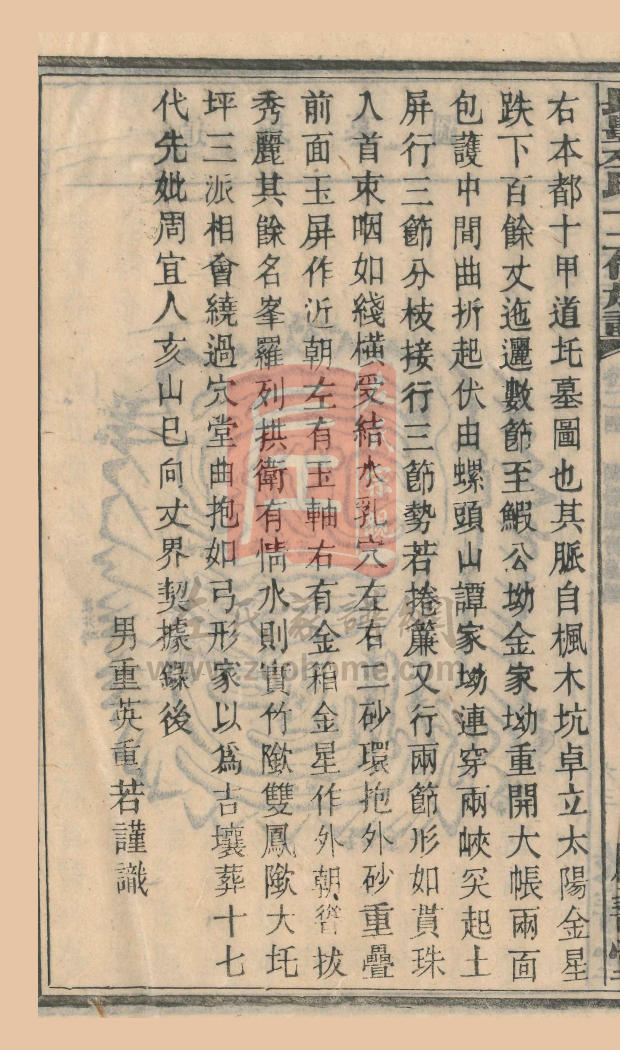 右本都十甲道圫墓圖也其脈自楓木坑卓立太陽金星
跌下百餘丈迤邐數節至鰕公坳金家坳重開大帳兩面
包護中間曲折起伏由螺頭山譚家坳連穿兩峽突起土
屏行三節分枝接行三節勢若捲簾又行兩節形如貫珠
入首束咽如綫橫受結水乳穴左右二砂環抱外砂重疊
前面玉屏作近朝左有玉軸右有金箱金星作外朝聳拔
秀麗其餘名峯羅列拱衛有情水則實竹隞雙鳳隞大圫
坪三派相會繞過穴堂曲抱如弓形家以爲吉壤葬十七
代先妣周宜人亥山巳向丈界契據錄後
男重英重若謹識
左氏家譜網